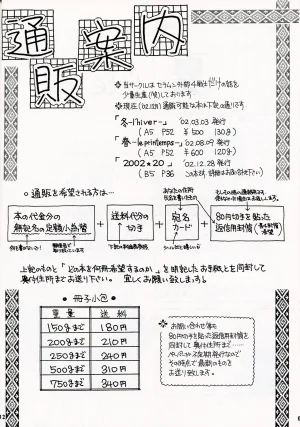 通販案内
◇当サークルはセラムン外部4戦士だけの話を
少量生産(笑)しております
◇現在(02.12月)通販可能な本は下記の通りです
「冬-l'hiver-」 '02.03.03発行
(A5 P52 ¥500 130g)
「春-le printemps-」 '02.08.09発行
(A5 P52 ¥600 120g)
「2002★20」 '02.12.28発行
(B5 P36
○通販を希望される方は…
本の代金分の
無記名の定額小為替
+
送料代分の
切手
+
宛名
カード
+
80円切手を貼った
返信用封筒
上記のものと「どの本を何冊希望するのか」を明記したお手紙とを同封して
奥付住所までお送り下さい。 宜しくお願い致します。
●冊子小包●
重量 送料
150gまで 180円
200gまで 210円
250gまで 240円
500gまで 310円
750gまで 340円
◇お問い合わせ等も
80円切手を貼った返信用封筒を
同封して奥付住所まで……
その時点で最新のものを
お送り致します。